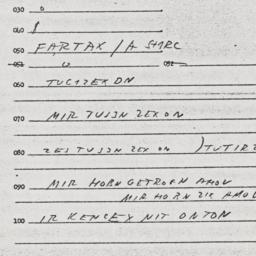 030
040
050 FARTAX / A SHRC
051 052
060 TUCTZEKDN
070 MIR TUSJN ZEKON
080 ZEJ TUSJN ZEKON )TUTIRZ
090 MIR HORN GETROFN AMOL
MIR HORN ZIK AMOL
100 IR KENCEX NIT ONTON